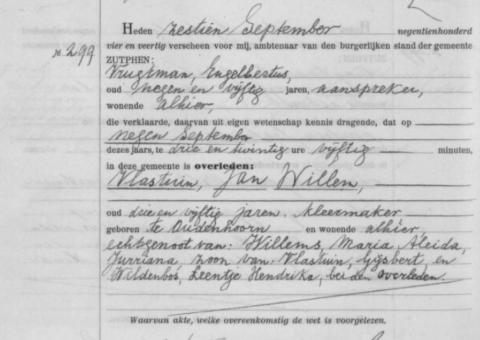 № 299
Heden zestien September negentienhonderd
vier en veertig verscheen voor mij, ambtenaar van den burgerlijken stand der gemeente
ZUTPHEN:
Vrugtman, Engelbertus,
oud negen en vijftig jaren, aanspreker,
wonende alhier,
die verklaarde, daarvan uit eigen wetenschap kennis dragende, dat op
negen September
dezes jaars, te drie en twintig ure vijftig minuten,
in deze gemeente is overleden:
Vlastuin, Jan Willem,
oud drie en vijftig jaren, kleermaker
geboren te Oudenhoorn en wonende alhier,
echtgenoot van: Willems, Maria Aleida,
Jurriana, zoon van: Vlastuin, Gijsbert, en
Wildenbos, Leentje Hendrika, beiden overleden.
Waarvan akte, welke overeenkomstig de wet is voorgelezen.